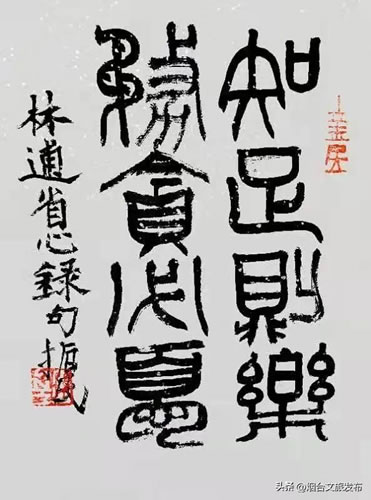 知足則樂
務貪必憂
林逋省心録句
头条 @烟台文旅发布